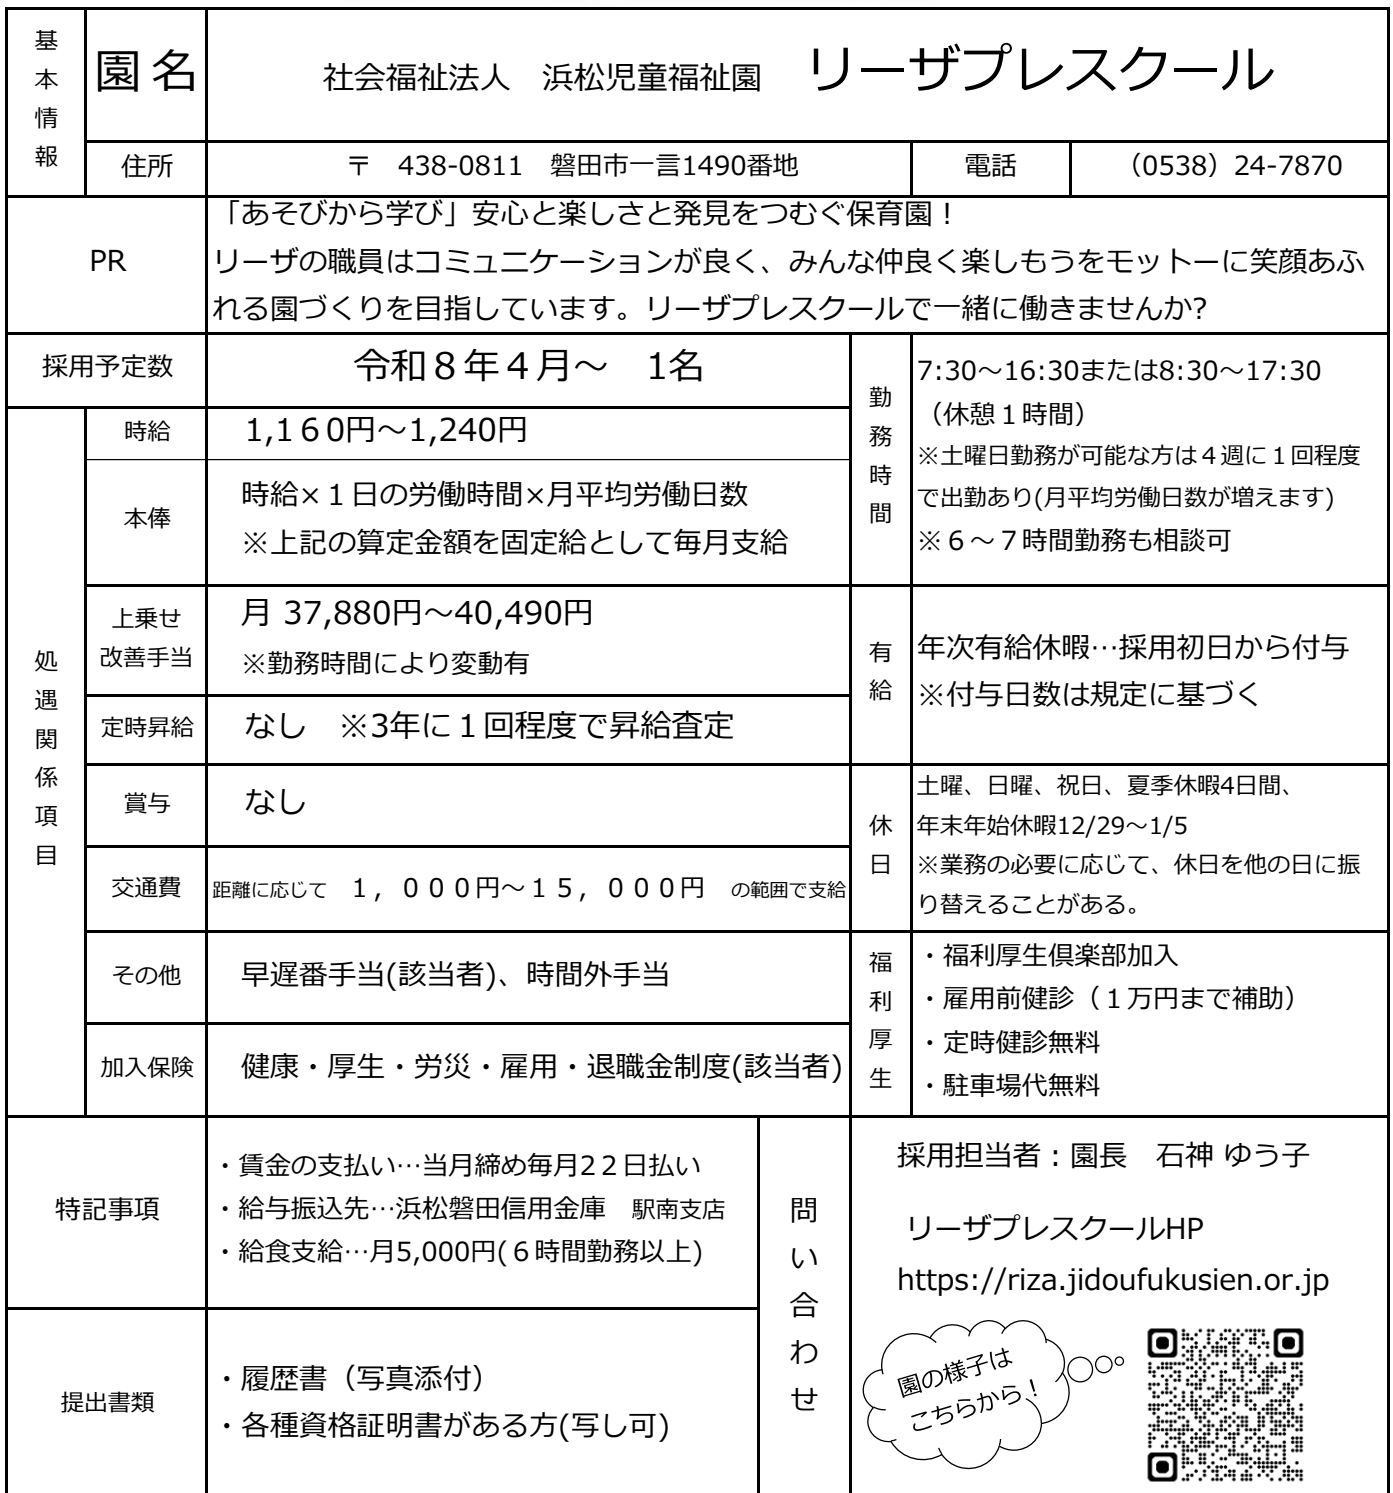 基本情報
園名
社会福祉法人　浜松児童福祉園　リーザプレスクール
住所
〒　438-0811　磐田市一言1490番地
電話
（0538）24-7870
PR
「あそびから学び」安心と楽しさと発見をつむぐ保育園！
リーザの職員はコミュニケーションが良く、みんな仲良く楽しもうをモットーに笑顔あふ
れる園づくりを目指しています。リーザプレスクールで一緒に働きませんか?
採用予定数
令和８年４月～　1名
処遇関係項目
時給
1,1６0円～1,240円
本俸
時給×１日の労働時間×月平均労働日数
※上記の算定金額を固定給として毎月支給
上乗せ
改善手当
月 37,880円～40,490円
※勤務時間により変動有
定時昇給
なし　※3年に１回程度で昇給査定
賞与
なし
交通費
距離に応じて　１，０００円～１５，０００円　の範囲で支給
その他
早遅番手当(該当者)、時間外手当
加入保険
健康・厚生・労災・雇用・退職金制度(該当者)
勤務時間
7:30～16:30または8:30～17:30
（休憩１時間）
※土曜日勤務が可能な方は４週に１回程度
で出勤あり(月平均労働日数が増えます)
※６～７時間勤務も相談可
有給
年次有給休暇…採用初日から付与
※付与日数は規定に基づく
休日
土曜、日曜、祝日、夏季休暇4日間、
年末年始休暇12/29～1/5
※業務の必要に応じて、休日を他の日に振
り替えることがある。
福利厚生
・福利厚生倶楽部加入
・雇用前健診（１万円まで補助）
・定時健診無料
・駐車場代無料
特記事項
・賃金の支払い…当月締め毎月2２日払い
・給与振込先…浜松磐田信用金庫　駅南支店
・給食支給…月5,000円(６時間勤務以上)
提出書類
・履歴書（写真添付）
・各種資格証明書がある方(写し可)
問い合わせ
採用担当者：園長　石神 ゆう子
リーザプレスクールHP
https://riza.jidoufukusien.or.jp
園の様子は
こちらから！